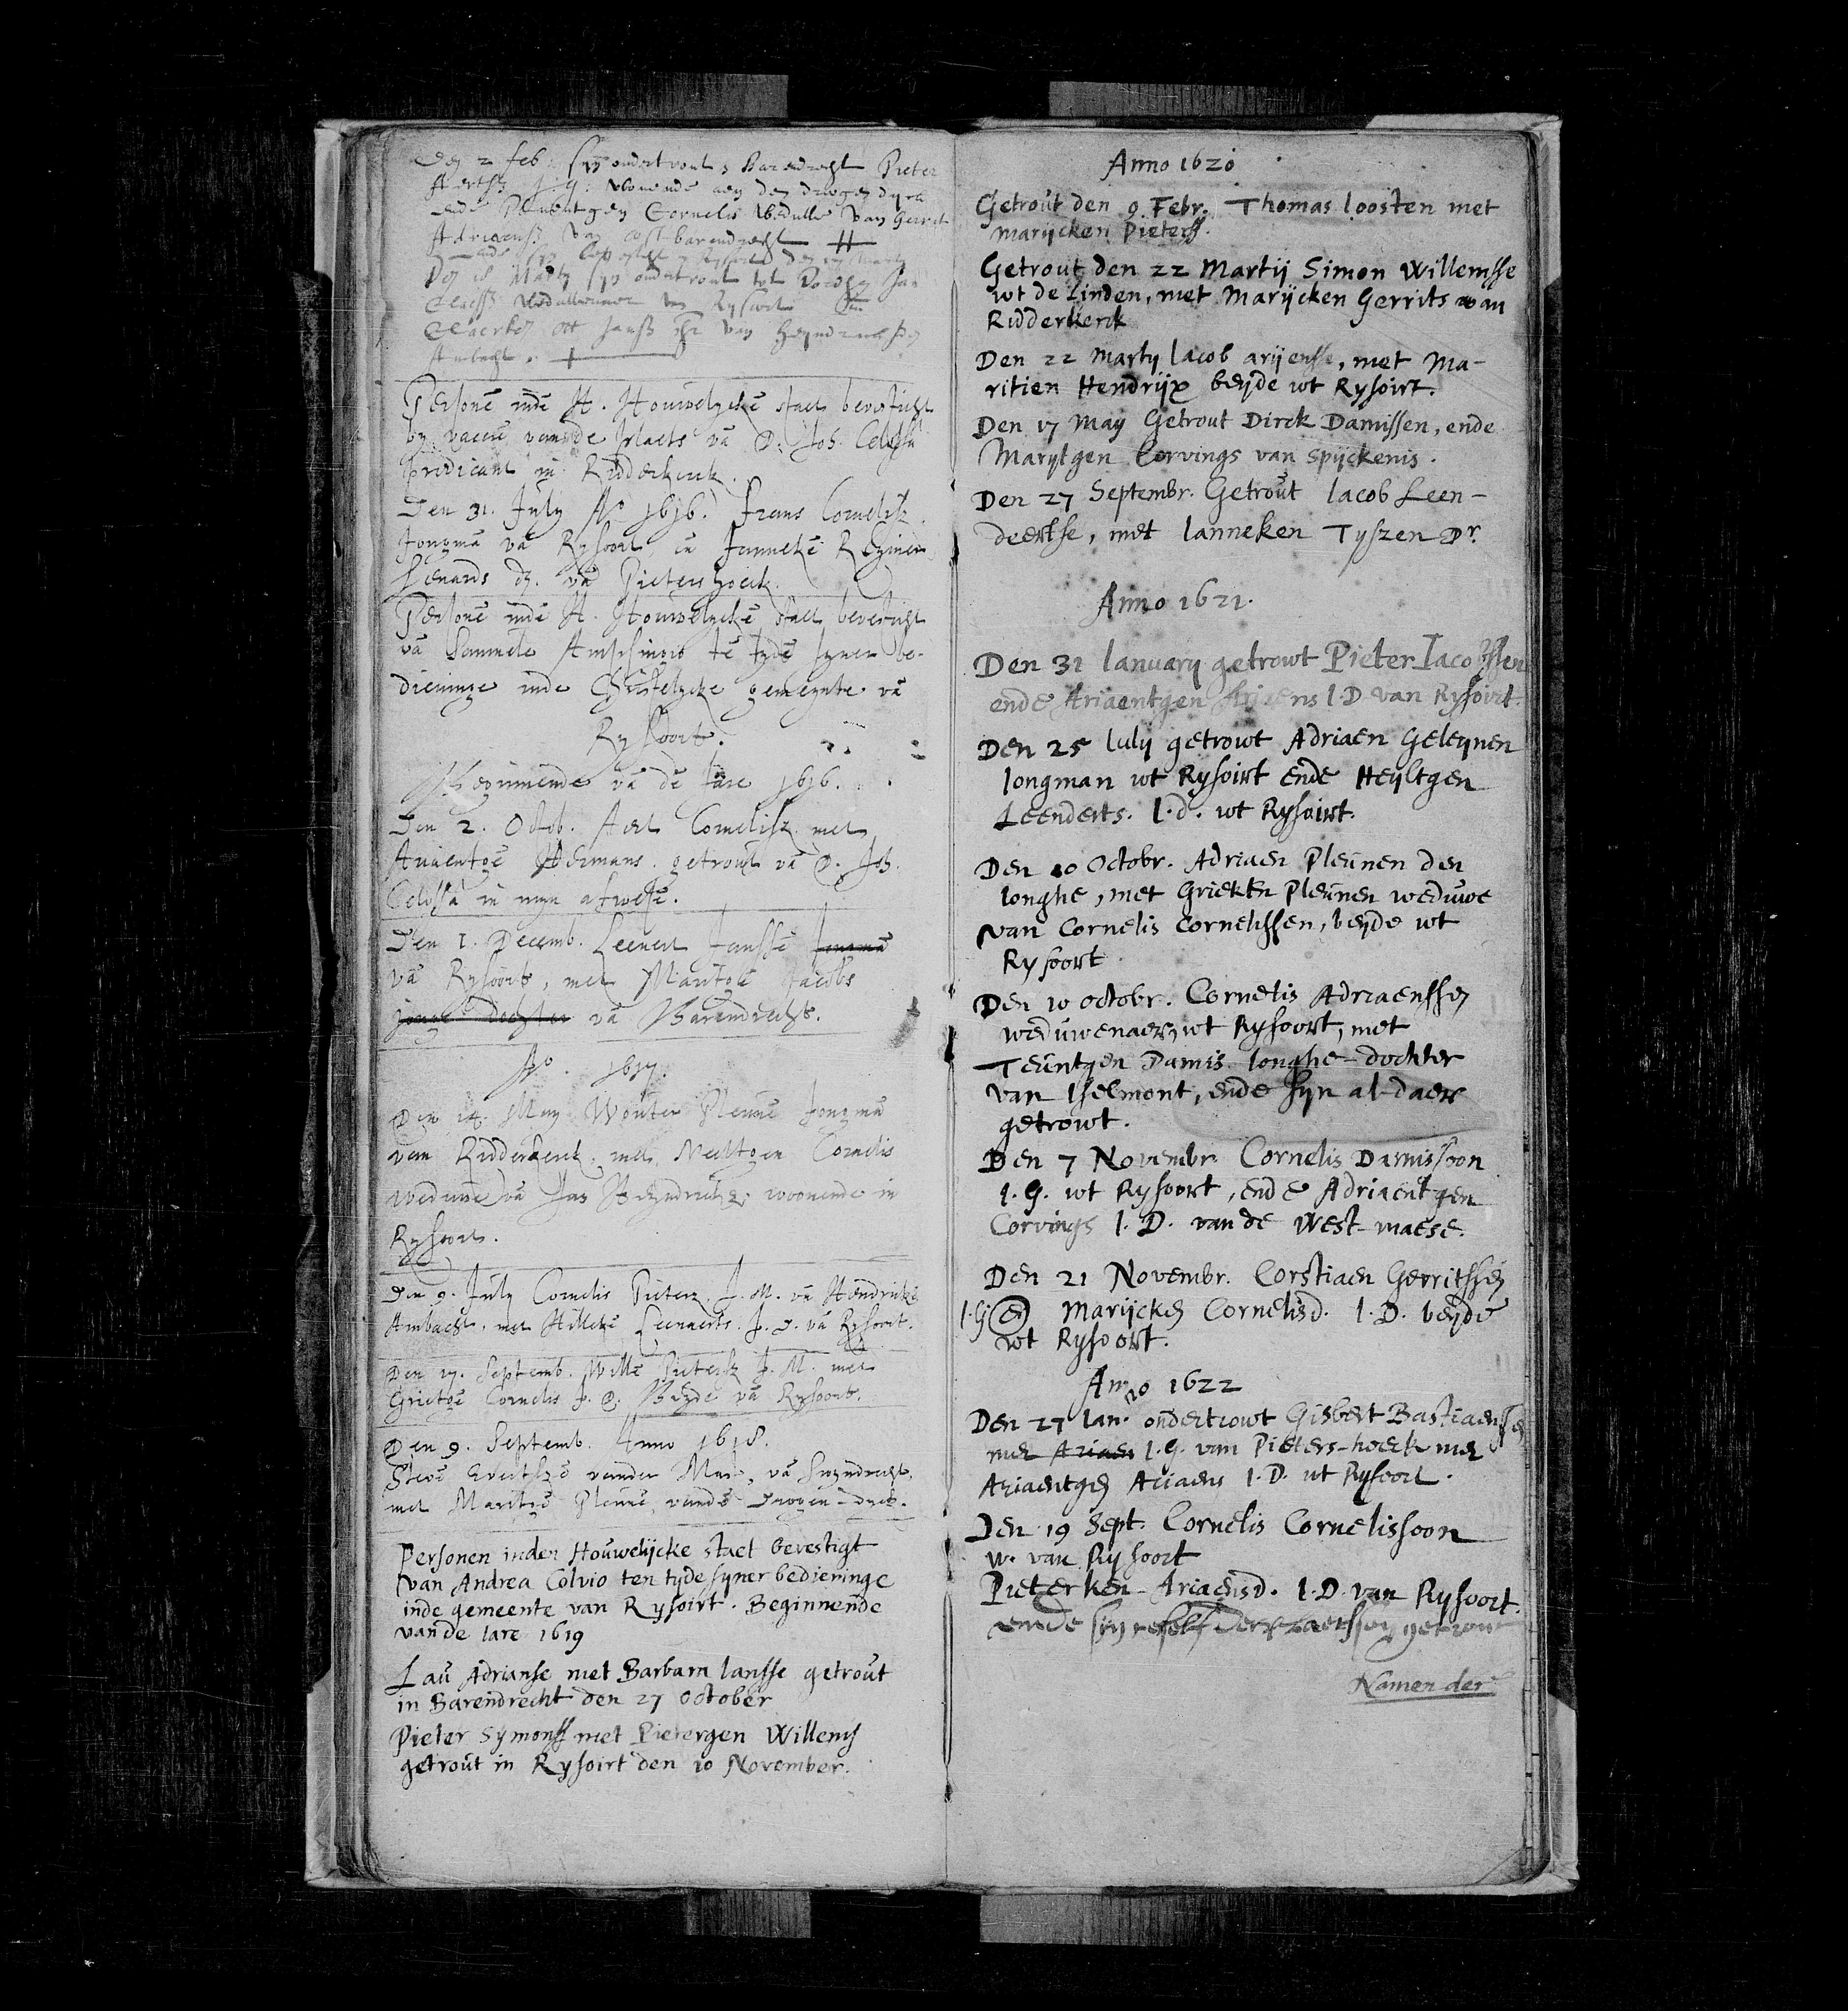 Den 2 feb: syn ondertrout Barendrecht Pieter
Aertss J:g: wonende aen den drogen dyck
ende Pleuntgen Cornelis wedue van Gerrit
Adriaenss van oost barendrecht
ende syn den Marty
Den Marty syn ondertrout tot Jan
Claess van Rysoort
Janss van Heyndrick Iden
Ambacht.
Personē indē H. Houwelyckē staet bevesticht
by vacerē vande plaets vā D. Joh. Celosså
predicant in Ridderkerck.
Den 31. July Aº 1616. Frans Cornelisz.
Jongmā vā Rysoort, en Jannekē
Lenards d. vā Pietershoeck.
Personē indē H. Houwelyckē staet bevesticht
vā Sammele te tydē syner be-
dieninge inde Christelycke gemeynte vā
Rysoort.
Beginnende vā dē Jare 1616.
Den 2. Octob. Aert Cornelisz. met
Ariaentgē Hermans. getrout vā D. Joh.
Celosså in myn afwesē.
Den 1. Decemb. Leenert Janssē Jongmā
vā Rysoort, met Maritgē Jacobs
jonge dochter vā Barendrecht.
Aº. 1617.
Den 14. May Wouter Pleunē Jongmā
van Ridderkerck. met Neeltgen Cornelis
weduwe vā Jas Heyndricksz. woonende in
Rysoort.
Den 9. July Cornelis Pietersz. J. M. vā Hendrickē
Ambacht. met Hillekē Leenaerts. J. D. vā Rysoort.
Den 17. Septemb. Willē Pietersz J. M. met
Grietgē Cornelis J. D. Beyde vā Rysoort.
Den 9. Septemb. Anno 1618.
vander vā Swyndrecht.
met Maritgē Pleunē vandē Drogen-dyck.
Personen inden Houwelijcke staet bevestigt
van Andrea Colvio ten tyde syner bedieninge
inde gemeente van Rysoirt. Beginnende
van de Iare 1619
Lau Adrianse met Barbara Iansse getrout
in Barendrecht den 27 October
Pieter Symonss met Pietergen Willems
getrout in Rysoirt den 10 November.
Anno 1620
Getrout den 9. Febr. Thomas Ioosten met
Marijcken Pieterss.
Getrout den 22 Martij Simon Willemsse
wt de Linden, met Marijcken Gerrits van
Ridderkerck
Den 22 Marty Iacob arijensse, met Ma-
ritien Hendrijx beijde wt Rysoirt.
Den 17 May Getrout Dirck Damissen, ende
Marijtgen Corvings van Spijckenis.
Den 27 Septembr. Getrout Iacob Leen-
deertse, met Ianneken Tyszen Dr.
Anno 1621.
Den 31 Ianuary getrowt Pieter Iacobssen
ende Ariaentgen Arjaens I.D van Rysoirt.
Den 25 Iuly getrowt Adriaen Geleynen
Iongman wt Rysoirt ende Heyltgen
Leenderts. I.d. wt Rysoirt.
Den 10 Octobr. Adriaen Pleunen den
Ionghe, met Grieken Pleunen weduwe
van Cornelis Cornelissen, beyde wt
Rysoort
Den 10 Octobr. Cornelis Adriaenssen
weduwenaer, wt Rysoort, met
Teuntgen Damis Ionghe-dochter
van Iselmont, ende syn al-daer
getrowt.
Den 7 Novembr Cornelis Damissoon
I.G. wt Rysoort, ende Adriaentgen
Corvings I.D. van de West-maese.
Den 21 Novembr. Corstiaen Gerritssen
I.G en Marijcken Cornelisd. I.D. beyde
wt Rysoort.
Anno 1622
Den 27 Ian. ondertrowt Gisbert Bastiaenssen
met Ariaen I.G. van Pieters-hoeck met
Ariaentgen Ariaens I.D. wt Rysoort.
Den 19 Sept. Cornelis Cornelissoon
w. van Rysoort
Pieterken Ariaensd. I.D. van Rysoort.
ende syn getrout
Namen der